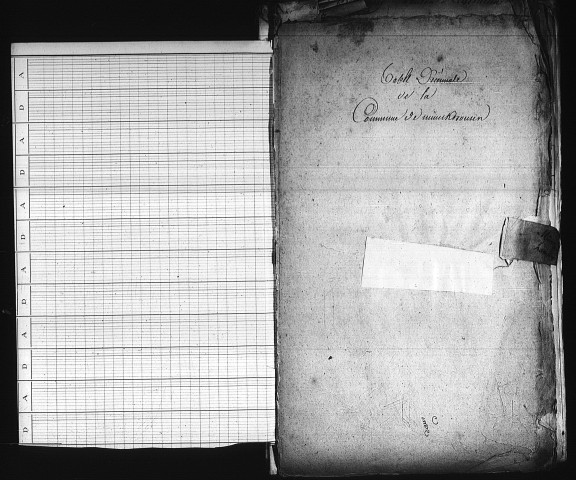 A
D
A
D
A
D
A
D
A
D
A
D
Table Décennale
de la
Commune de